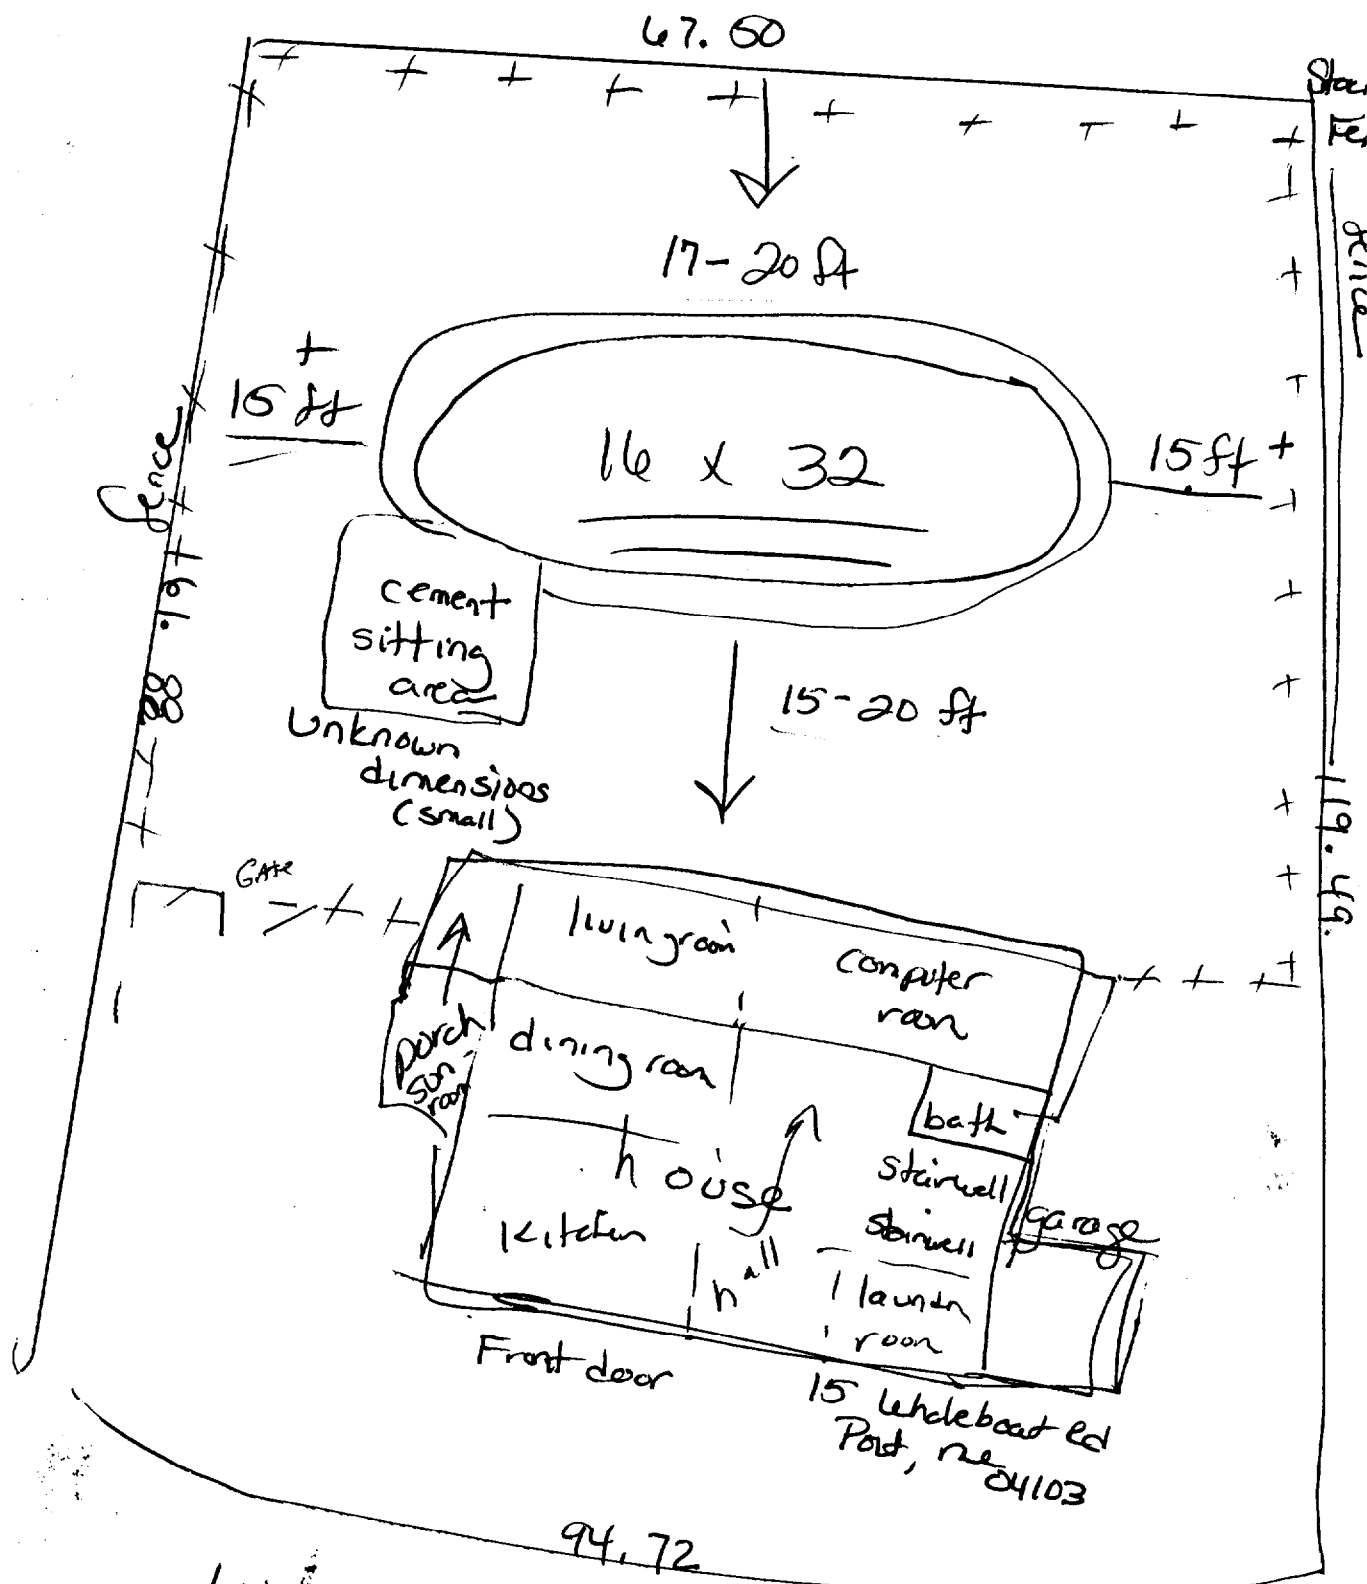 67.60
17-20 ft
+
15 ft
16 x 32
15 ft
fence
161.88
cement
sitting
area
unknown
dimensions
(small)
15-20 ft
119.49.
GATE
livingroom
computer
room
porch
sun
room
dining room
bath
house
stairwell
stairwell
garage
kitchen
hall
room
Front door
15 Whaleboat Rd
Port, me
04103
94.72